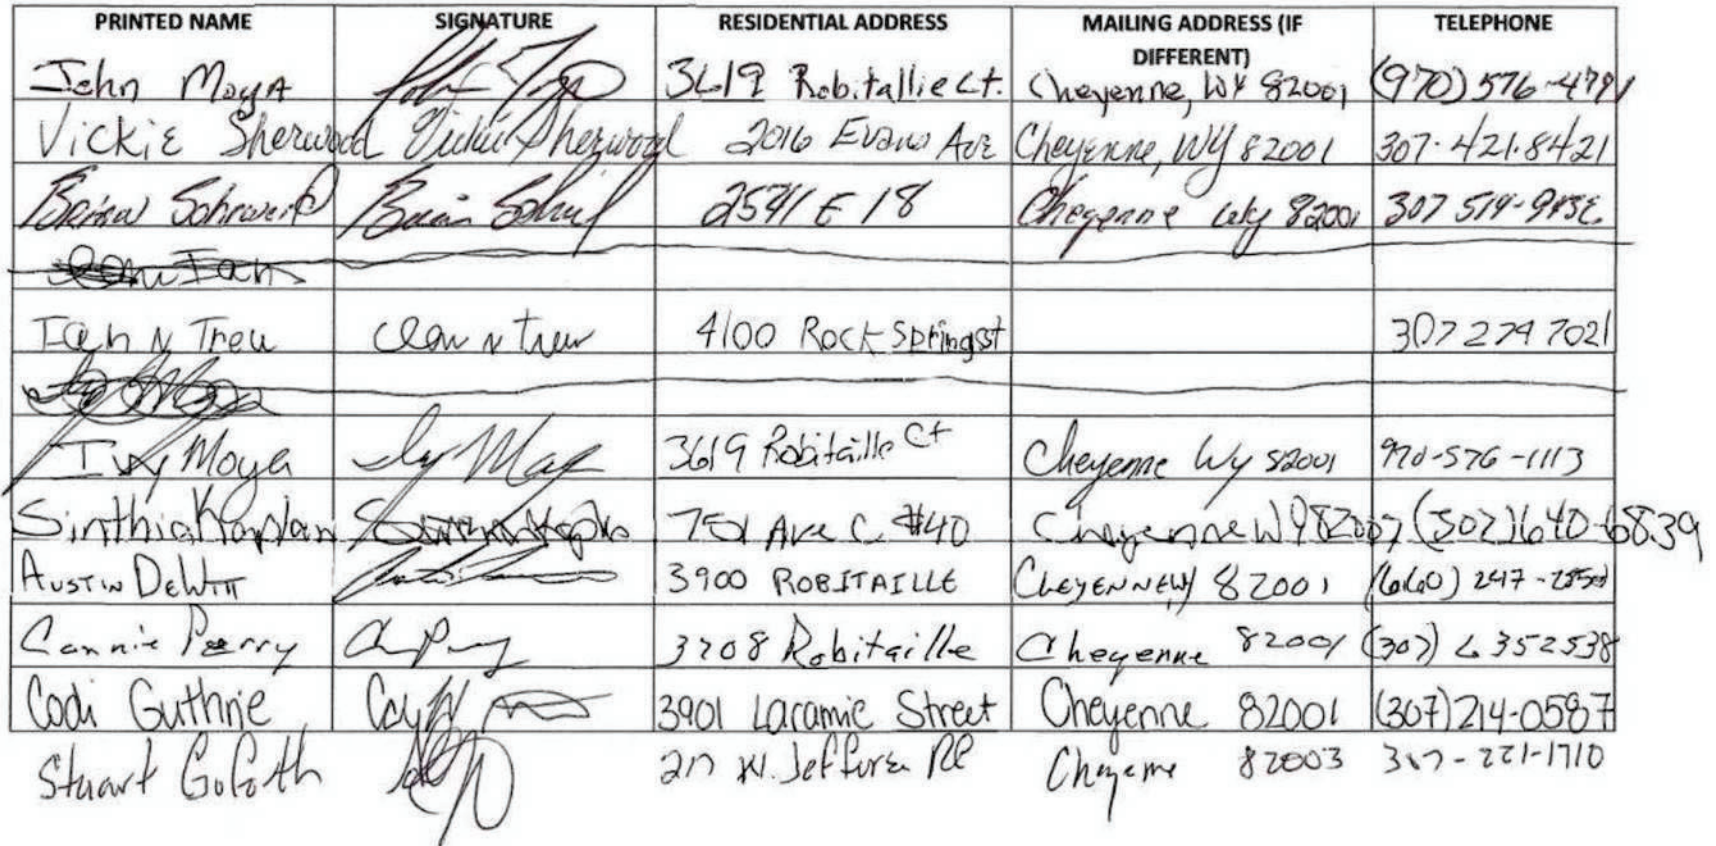 PRINTED NAME SIGNATURE RESIDENTIAL ADDRESS MAILING ADDRESS (IF DIFFERENT) TELEPHONE
John Moya 3619 Robitallie Ct. Cheyenne, WY 82001 (970) 576-4791
Vickie Sherwood Vickie Sherwood 2016 Evans Ave Cheyenne, WY 82001 307.421.8421
Brian 2541 E 18 Cheyenne Wy 82001 307 514-
Ian
Ian N Treu Ian N Treu 4100 Rock Springs st 307 274 7021
Ivy Moya Ivy 3619 Robitaille Ct Cheyenne Wy 82001 970-576-1113
Sinthia Kaplan Ave C #40 Cheyenne WY 82007 640-6839
Austin DeWitt 3900 ROBITAILLE CHEYENNE WY 82001 (660) 247-
Connie Perry 3208 Robitaille Cheyenne 82001 (307) 6352538
Codi Guthrie 3901 Laramie Street Cheyenne 82001 (307) 214-0587
Stuart W. Cheyenne 82003 307-221-1710